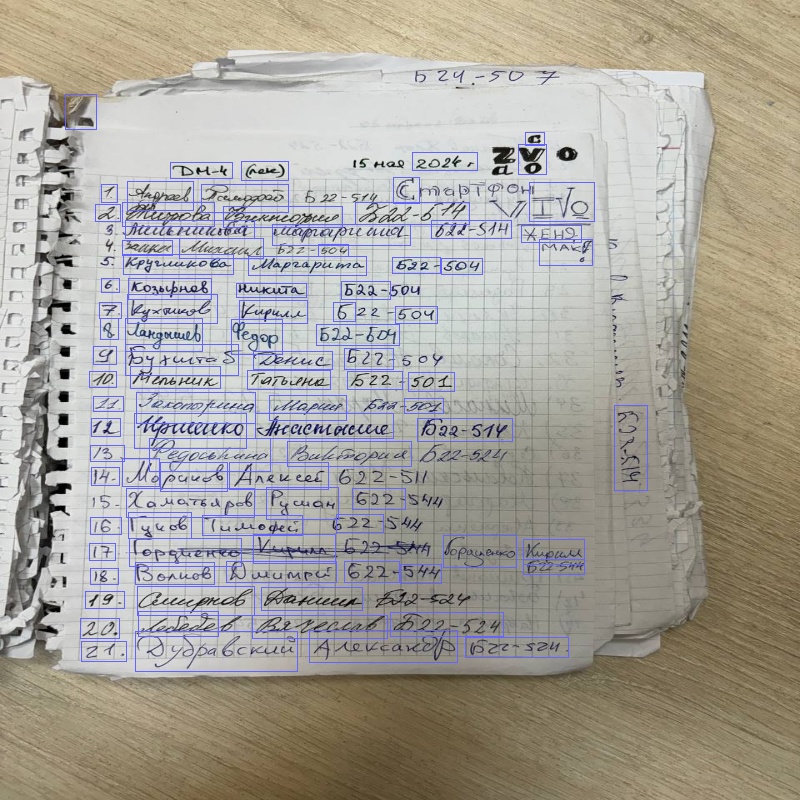 Б24.-507
с
ZVO O
do
ДМ-4 (лек) 15 мая 2024г.
1. Андреев Тимофей Б22-514 Стартфон
2. Жирова Виктория Б22-514 VI IVO
3. Мельникова Маргарита Б22-514 ЖЕНЯ
4. Михаил Б22-504 МАК!
5. Кругликова Маргарита Б22-504
6. Козырнов никита Б22-504
7. Кухтинов Кирилл Б22-504
8 Ландышев Федор Б22-504
9 Бухштаб Денис Б22-504
10. Мельник Татьяна Б22-501
11 Захопорина Мария Б22-501
12 Юрченко Анастасия Б22-514
13. Федоськина Виктория Б22-524
14. Мориков Алексей Б22-511
15. Хаматьяров Руслан Б22-544
16. Гуков Тимофей Б22-544
17. Гордиенко Кирилл Б22-544 Гордиенко Кирилл
Б22-544
18. Волков Дмитрий Б22-544
19. Смирнов Даниил Б22-524
20. Лебедев Вячеслав Б22-524
21. Дубравский Александр Б22-524
Б22-514